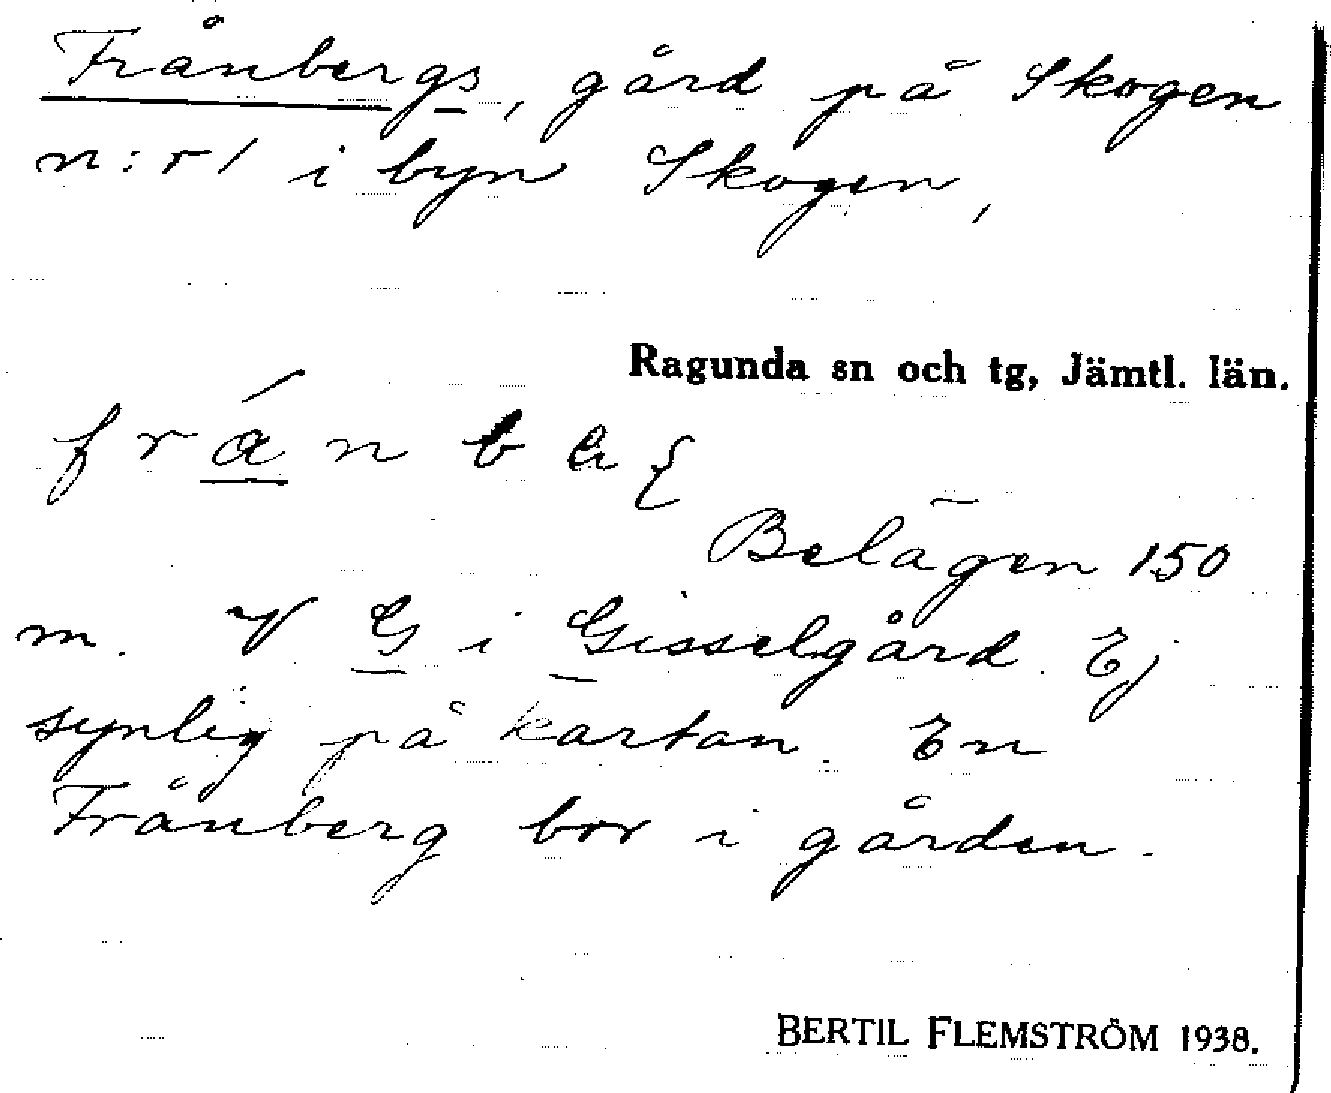 Frånbergs, gård på Skogen
n:r 1 i byn Skogen,
Ragunda sn och tg, Jämtl. län.
Belägen 150
m. V G i Gisselgård. Ej
synlig på kartan. En
Frånberg bor i gården.
BERTIL FLEMSTRÖM 1938.